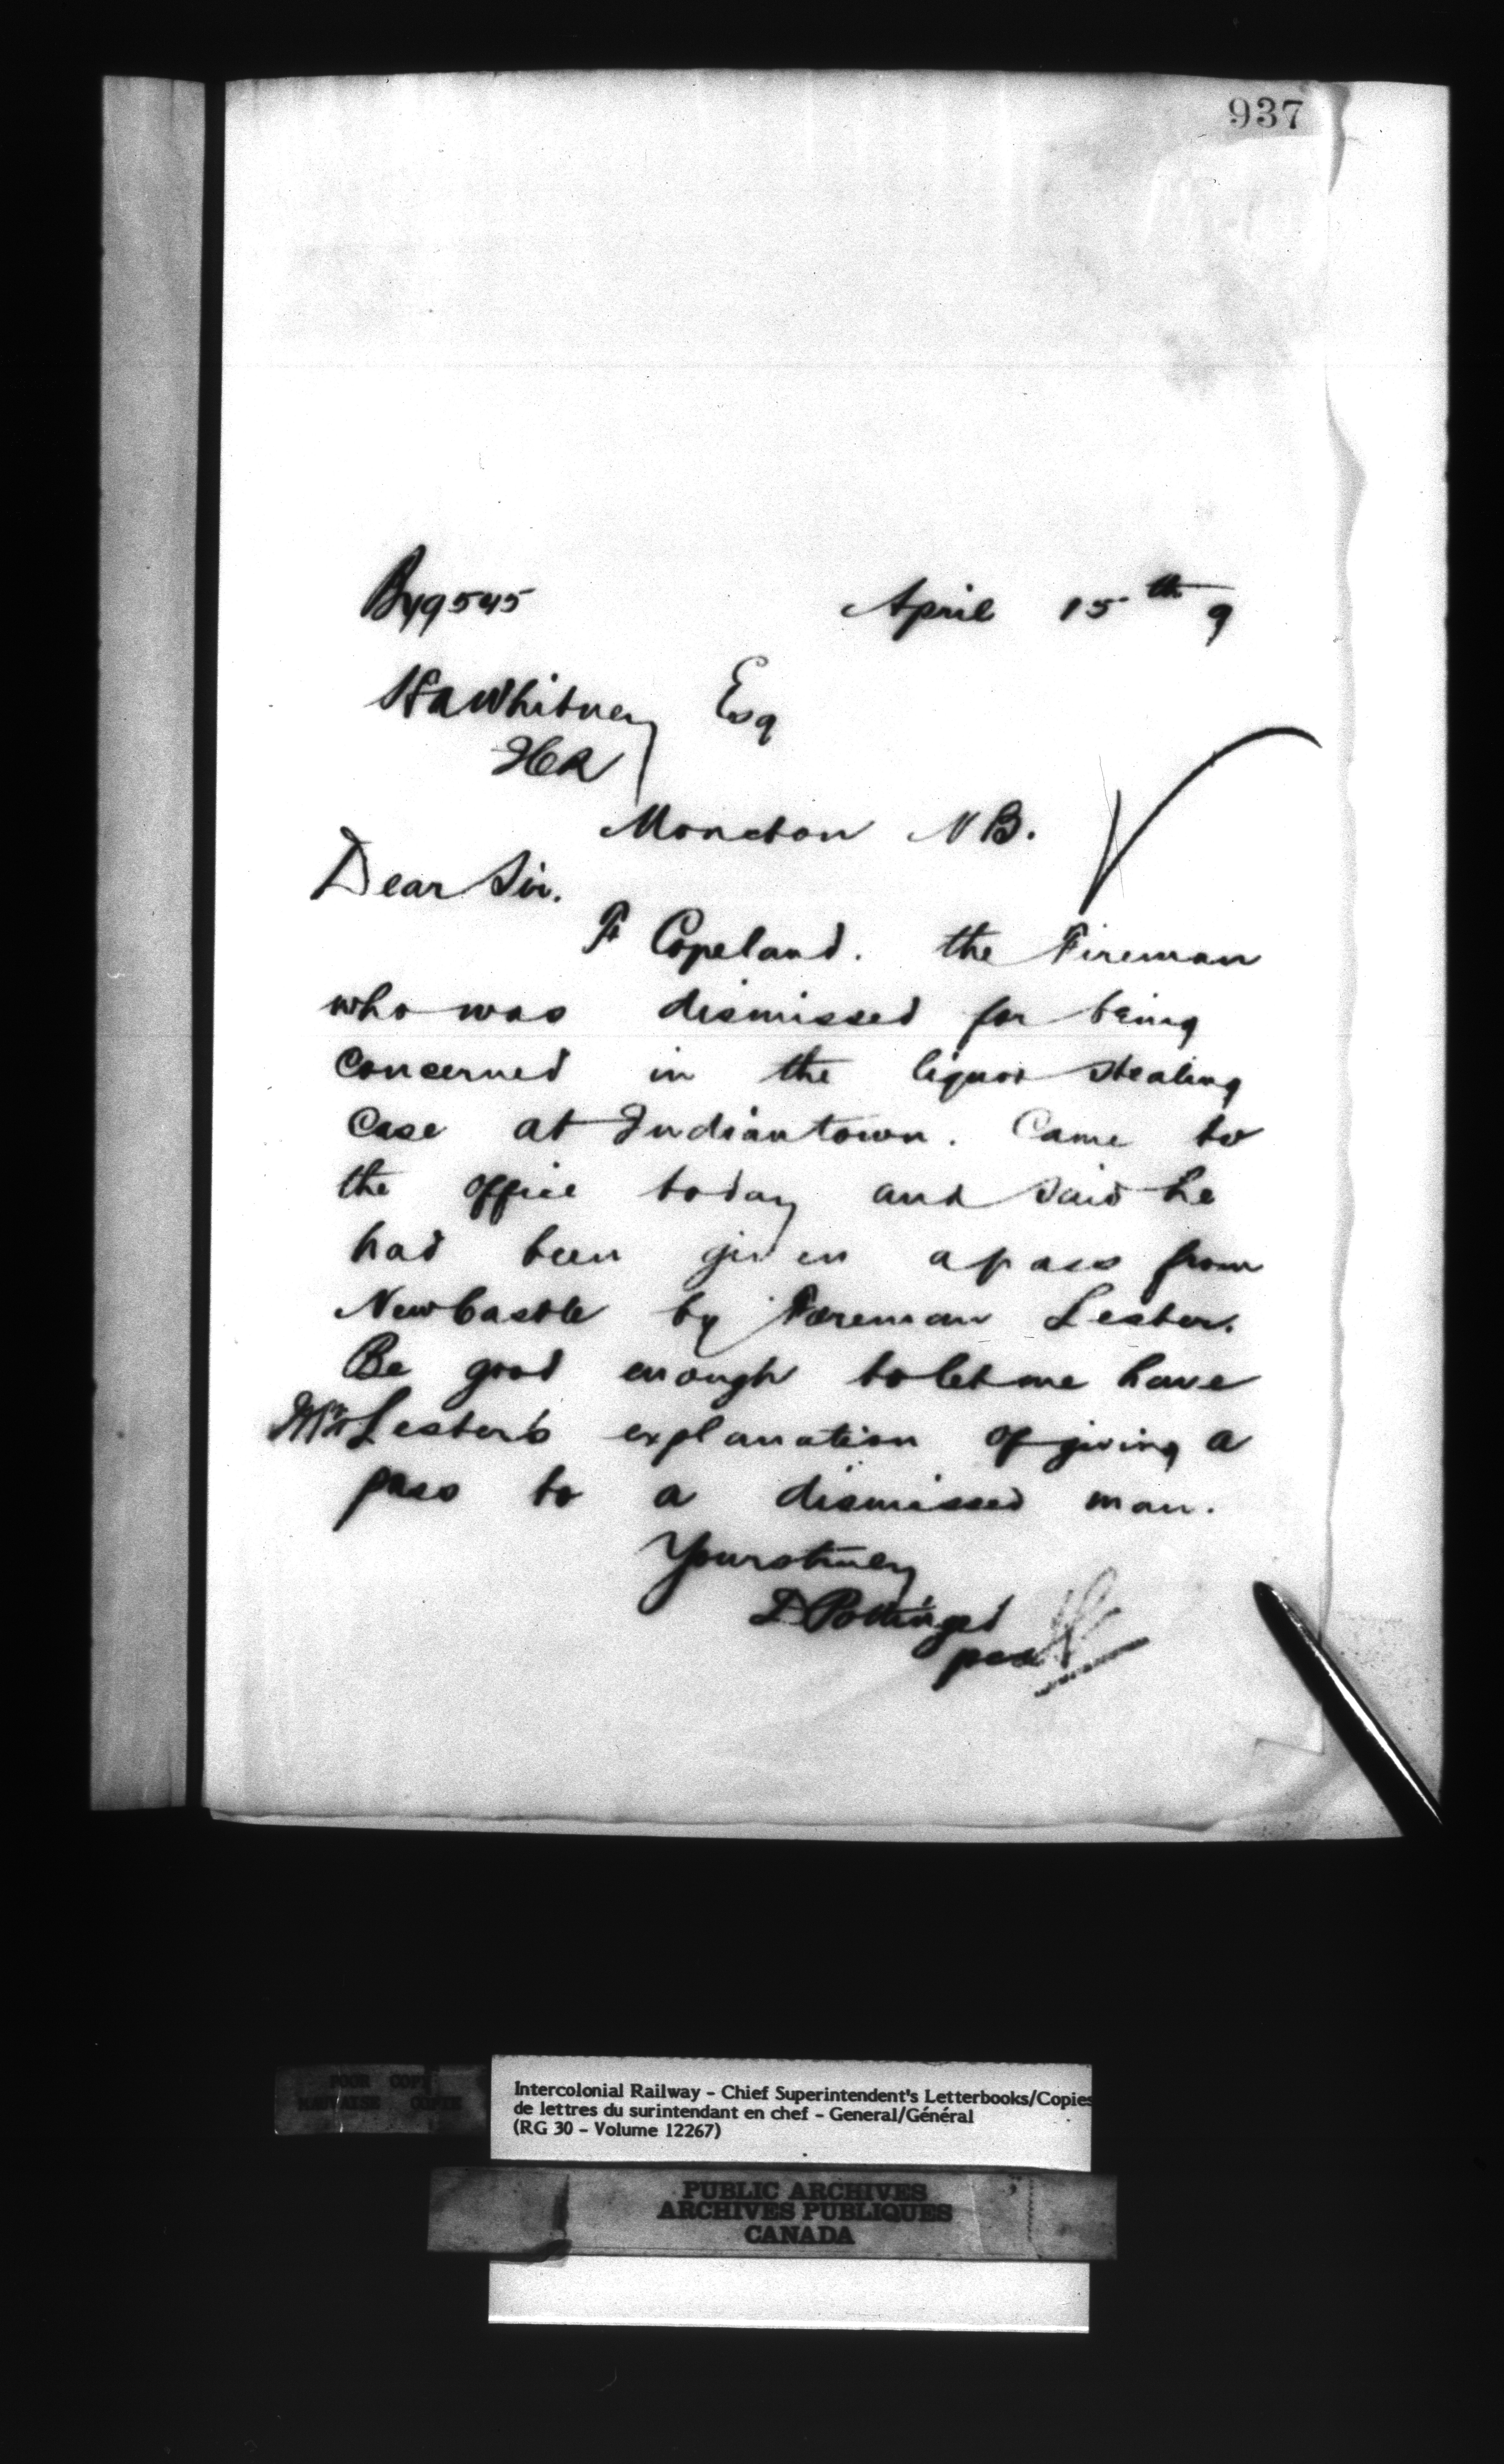 937
By 9545 April 15th 9
H A Whitney Esq
ICR
Moncton N B.
Dear Sir.
F Copeland. the Fireman
who was dismissed for being
concerned in the liquor stealing
case at Indiantown. Came to
the office today and said he
had been given a pass from
NewCastle by Foreman Lester.
Be good enough to let me have
Mr Lester's explanation of giving a
pass to a dismissed man.
Yours truly
D Pottinger
per
POOR COPY
MAUVAISE COPIE
Intercolonial Railway - Chief Superintendent's Letterbooks/Copies
de lettres du surintendant en chef - General/Général
(RG 30 - Volume 12267)
PUBLIC ARCHIVES
ARCHIVES PUBLIQUES
CANADA